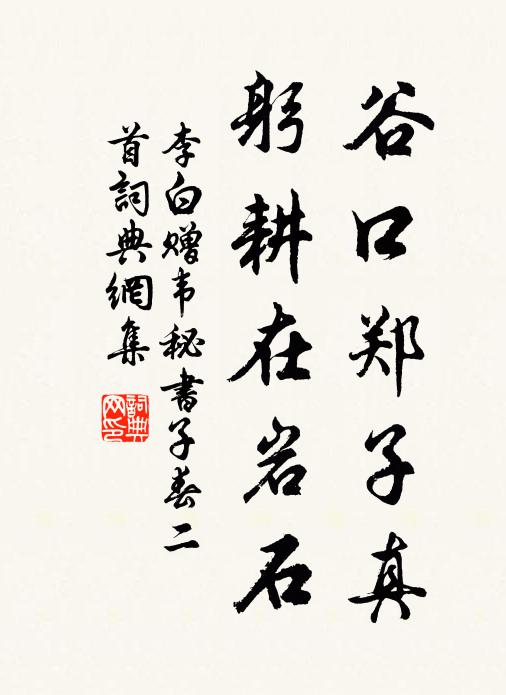 谷口郑子真
躬耕在岩石
李白赠韦秘書子春二
首詞典網集
詞典
网印